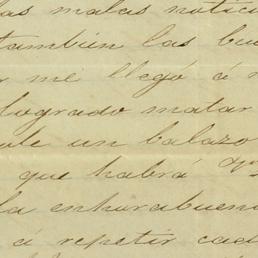 las malas notici
también las bue
r me llegó á m
logrado matar
le un balazo
que habrá
la enhorabuen
á repetir cad